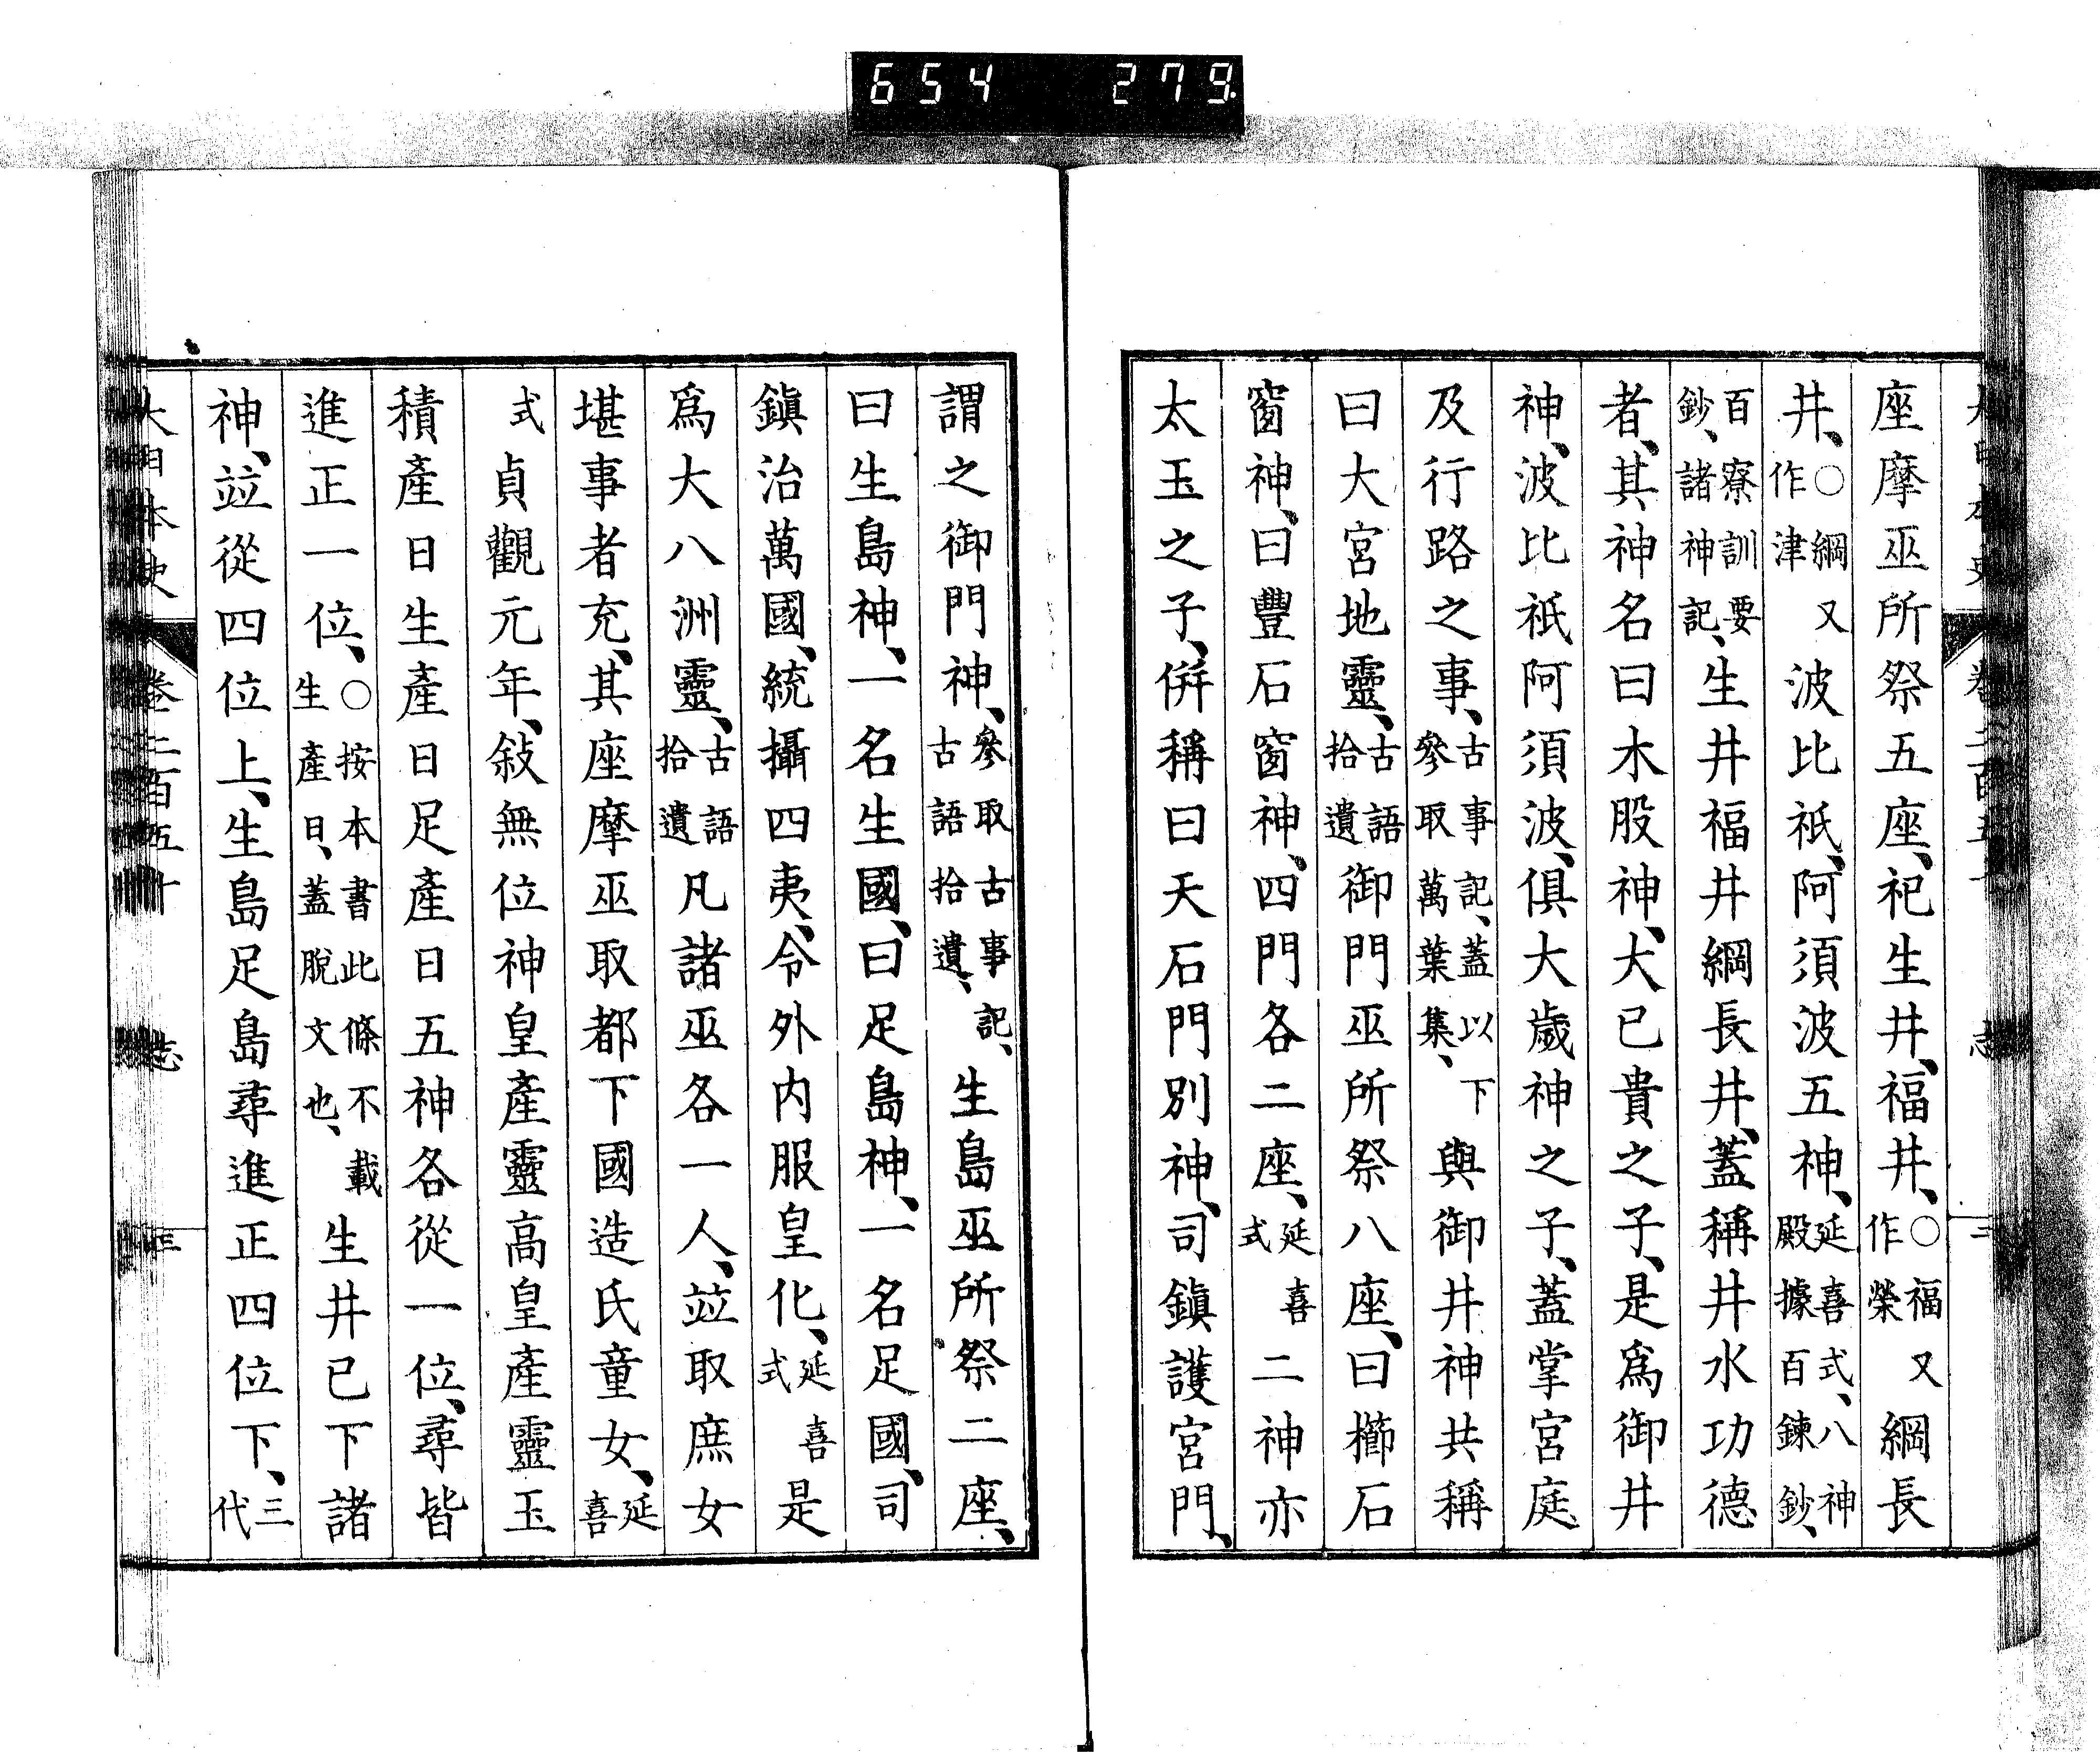 654 279.
座摩巫所祭五座、祀生井、福井、○福又作榮綱長
井、○綱又作津波比祇、阿須波五神、延喜式、八神殿據百錬鈔、
百寮訓要鈔、諸神記、生井福井綱長井、蓋稱井水功德
者、其神名曰木股神、大已貴之子、是爲御井
神、波比祇阿須波、俱大歲神之子、蓋掌宮庭
及行路之事、古事記、蓋以下參取萬葉集、與御井神共稱
曰大宮地靈、古語拾遺御門巫所祭八座、曰櫛石
窗神、曰豐石窗神、四門各二座、延喜式二神亦
太玉之子、併稱曰天石門別神、司鎭護宮門、
謂之御門神、參取古事記、古語拾遺、生島巫所祭二座、
曰生島神、一名生國、曰足島神、一名足國、司
鎭治萬國、統攝四夷、令外内服皇化、延喜式是
爲大八洲靈、古語拾遺凡諸巫各一人、竝取庶女
堪事者充、其座摩巫取都下國造氏童女、延喜
式貞觀元年、敍無位神皇產靈高皇產靈玉
積產日生產日足產日五神各從一位、尋皆
進正一位、○按本書此條不載生產日、蓋脫文也、生井已下諸
神、竝從四位上、生島足島尋進正四位下、三代
大日本史 卷二百五十 志 三